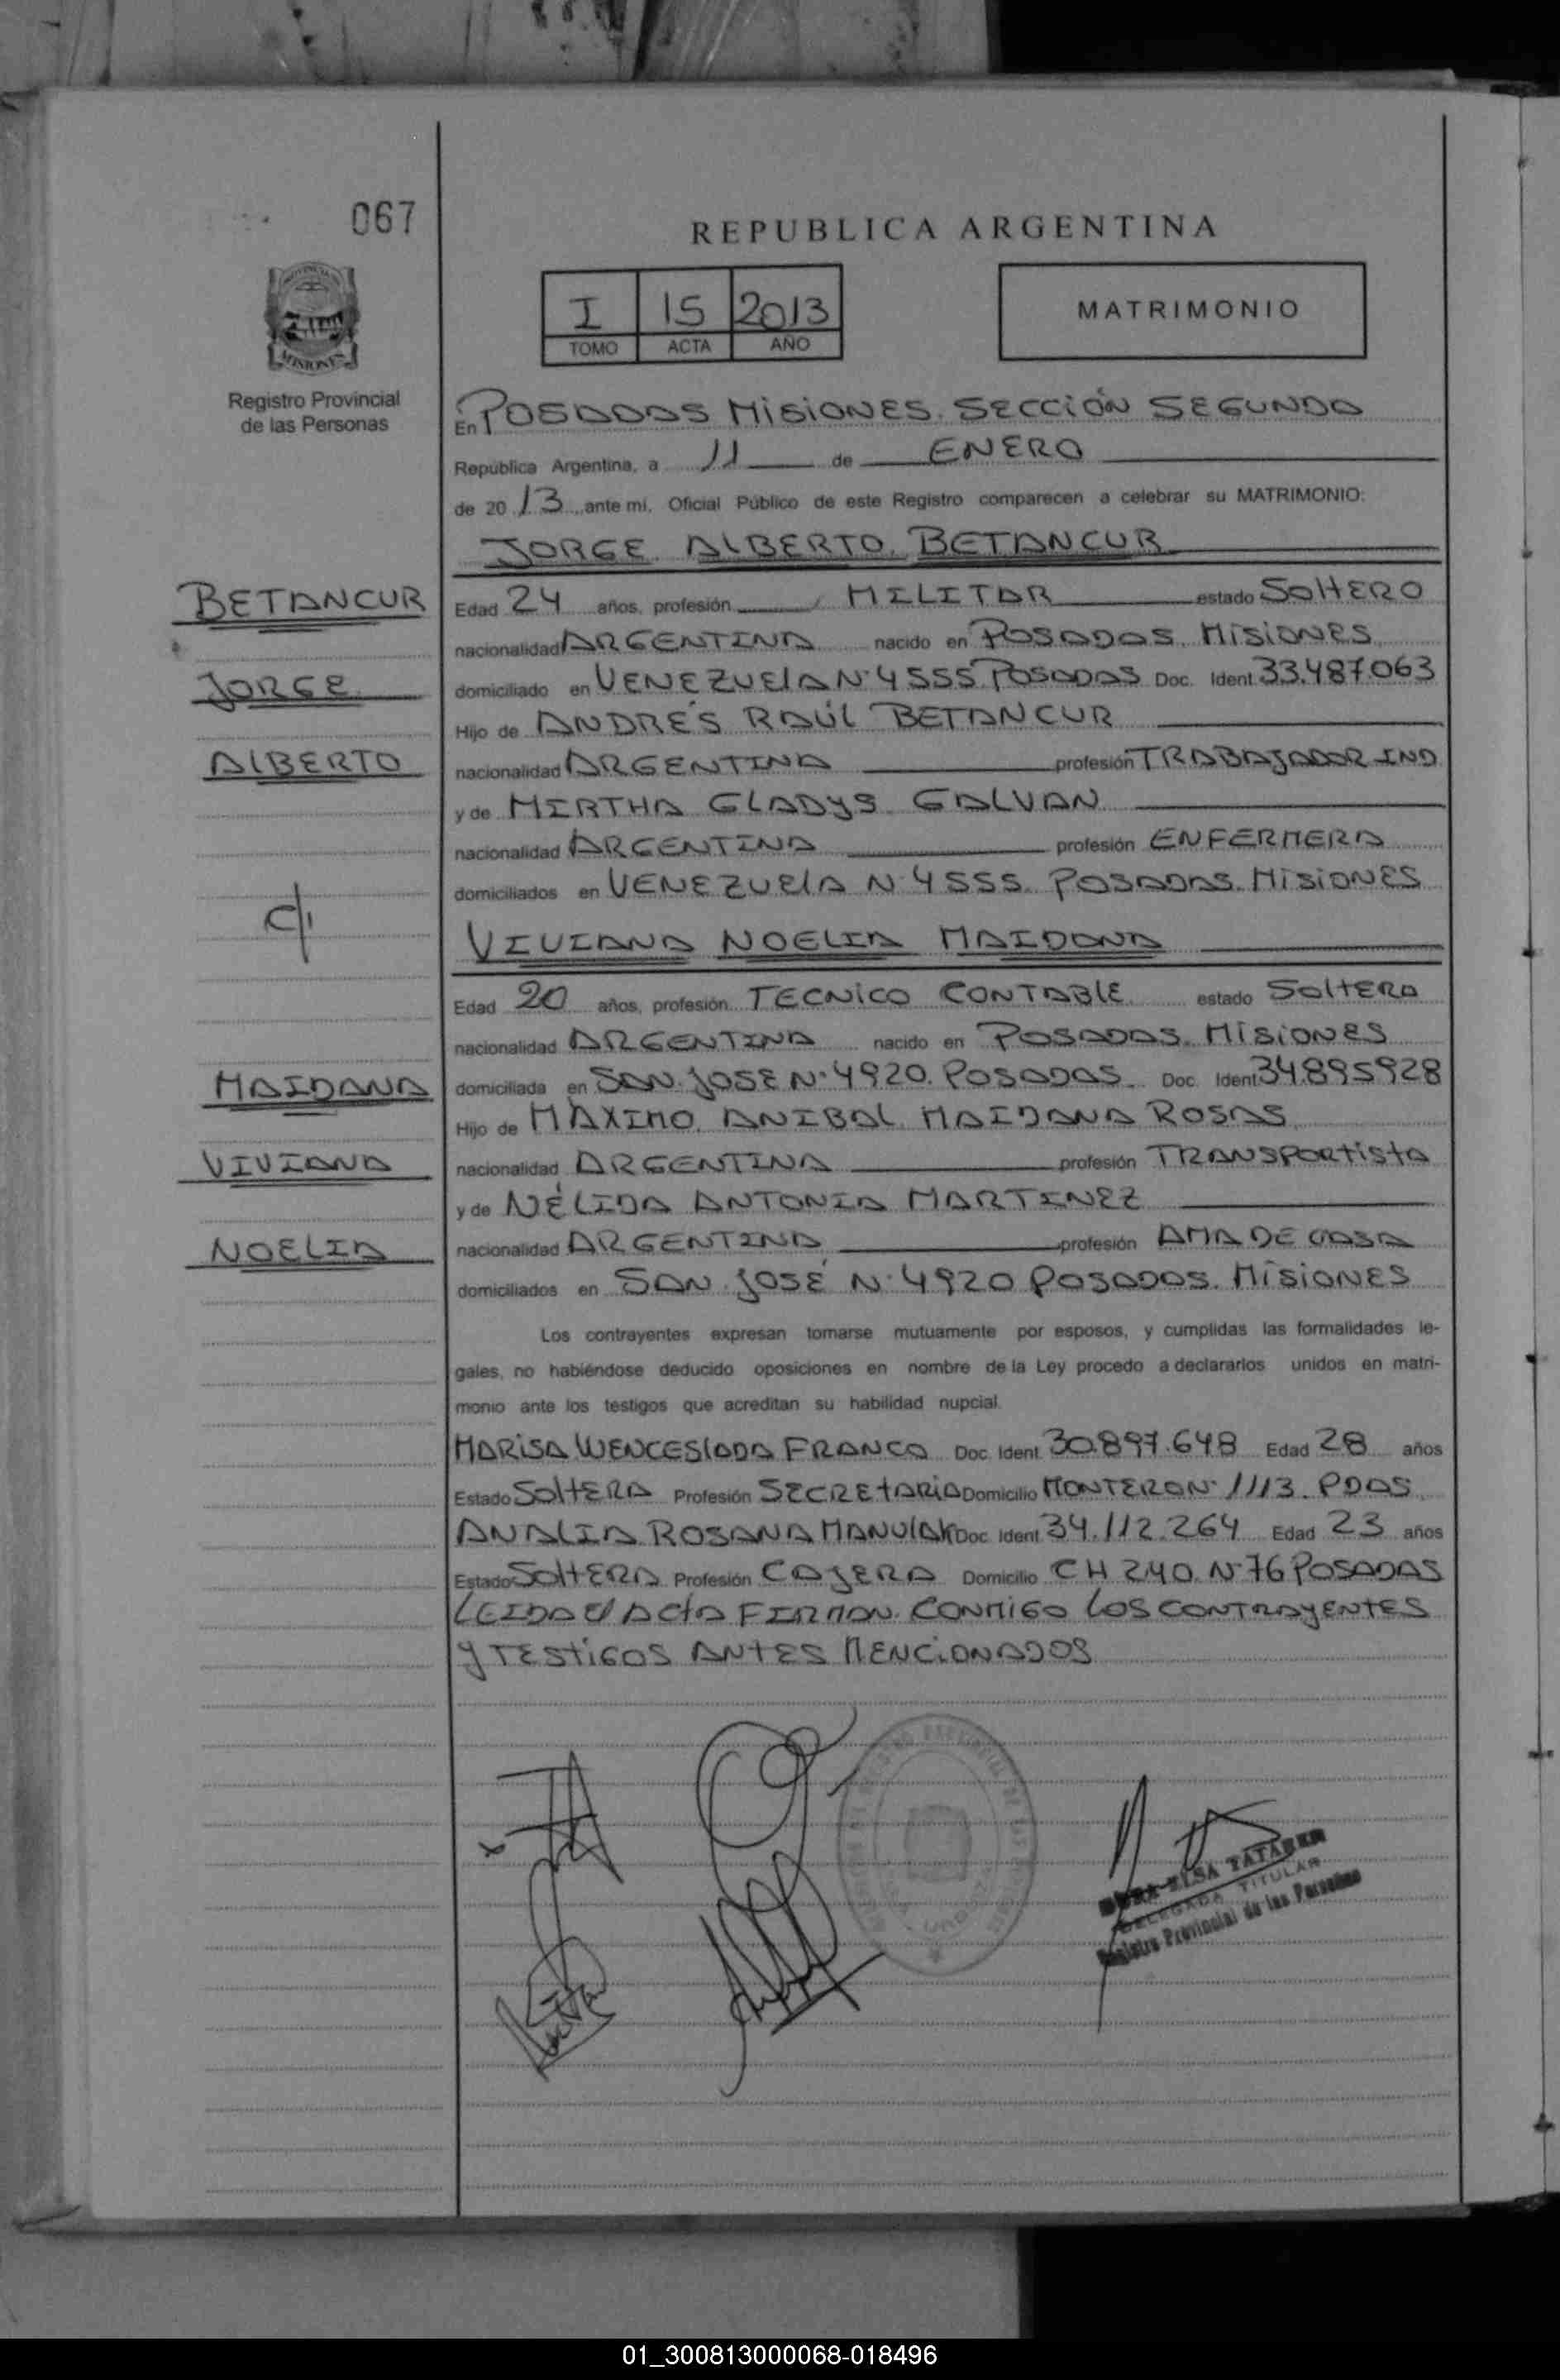 067
REPUBLICA ARGENTINA
I 15 2013
TOMO ACTA AÑO
MATRIMONIO
MISIONES
Registro Provincial
de las Personas
En POSADAS MISIONES. SECCIÓN SEGUNDA
República Argentina, a 11 de ENERO
de 2013 ante mi, Oficial Público de este Registro comparecen a celebrar su MATRIMONIO:
JORGE ALBERTO BETANCUR
BETANCUR
JORGE
ALBERTO
Edad 24 años, profesión MILITAR estado SOLTERO
nacionalidad ARGENTINA nacido en POSADAS. MISIONES
domiciliado en VENEZUELA N° 4555 POSADAS Doc. Ident. 33.487.063
Hijo de ANDRÉS RAÚL BETANCUR
nacionalidad ARGENTINA profesión TRABAJADOR IND
y de MIRTHA GLADYS GALVAN
nacionalidad ARGENTINA profesión ENFERMERA
domiciliados en VENEZUELA N° 4555 POSADAS. MISIONES
VIVIANA NOELIA MAIDANA
MAIDANA
VIVIANA
NOELIA
Edad 20 años, profesión TECNICO CONTABLE estado SOLTERA
nacionalidad ARGENTINA nacido en POSADAS. MISIONES
domiciliada en SAN JOSE N° 4920. POSADAS Doc. Ident. 34.895928
Hijo de MÁXIMO ANIBAL MAIDANA ROSAS
nacionalidad ARGENTINA profesión TRANSPORTISTA
y de NÉLIDA ANTONIA MARTINEZ
nacionalidad ARGENTINA profesión AMA DE CASA
domiciliados en SAN JOSÉ N° 4920 POSADAS. MISIONES
Los contrayentes expresan tomarse mutuamente por esposos, y cumplidas las formalidades le-
gales, no habiéndose deducido oposiciones en nombre de la Ley procedo a declararlos unidos en matri-
monio ante los testigos que acreditan su habilidad nupcial.
MARISA WENCESLADA FRANCO Doc. Ident. 30.897.648 Edad 28 años
Estado SOLTERA Profesión SECRETARIA Domicilio MONTERO N° 1113. PDAS
ANALIA ROSANA MANULAK Doc. Ident. 34.112.264 Edad 23 años
Estado SOLTERA Profesión CAJERA Domicilio CH 240. N° 76 POSADAS
LEIDA El ACTA FIRMAN CONMIGO LOS CONTRAYENTES
Y TESTIGOS ANTES MENCIONADOS
ELSA
DELEGADA TITULAR
Registro Provincial de las Personas
01_300813000068-018496